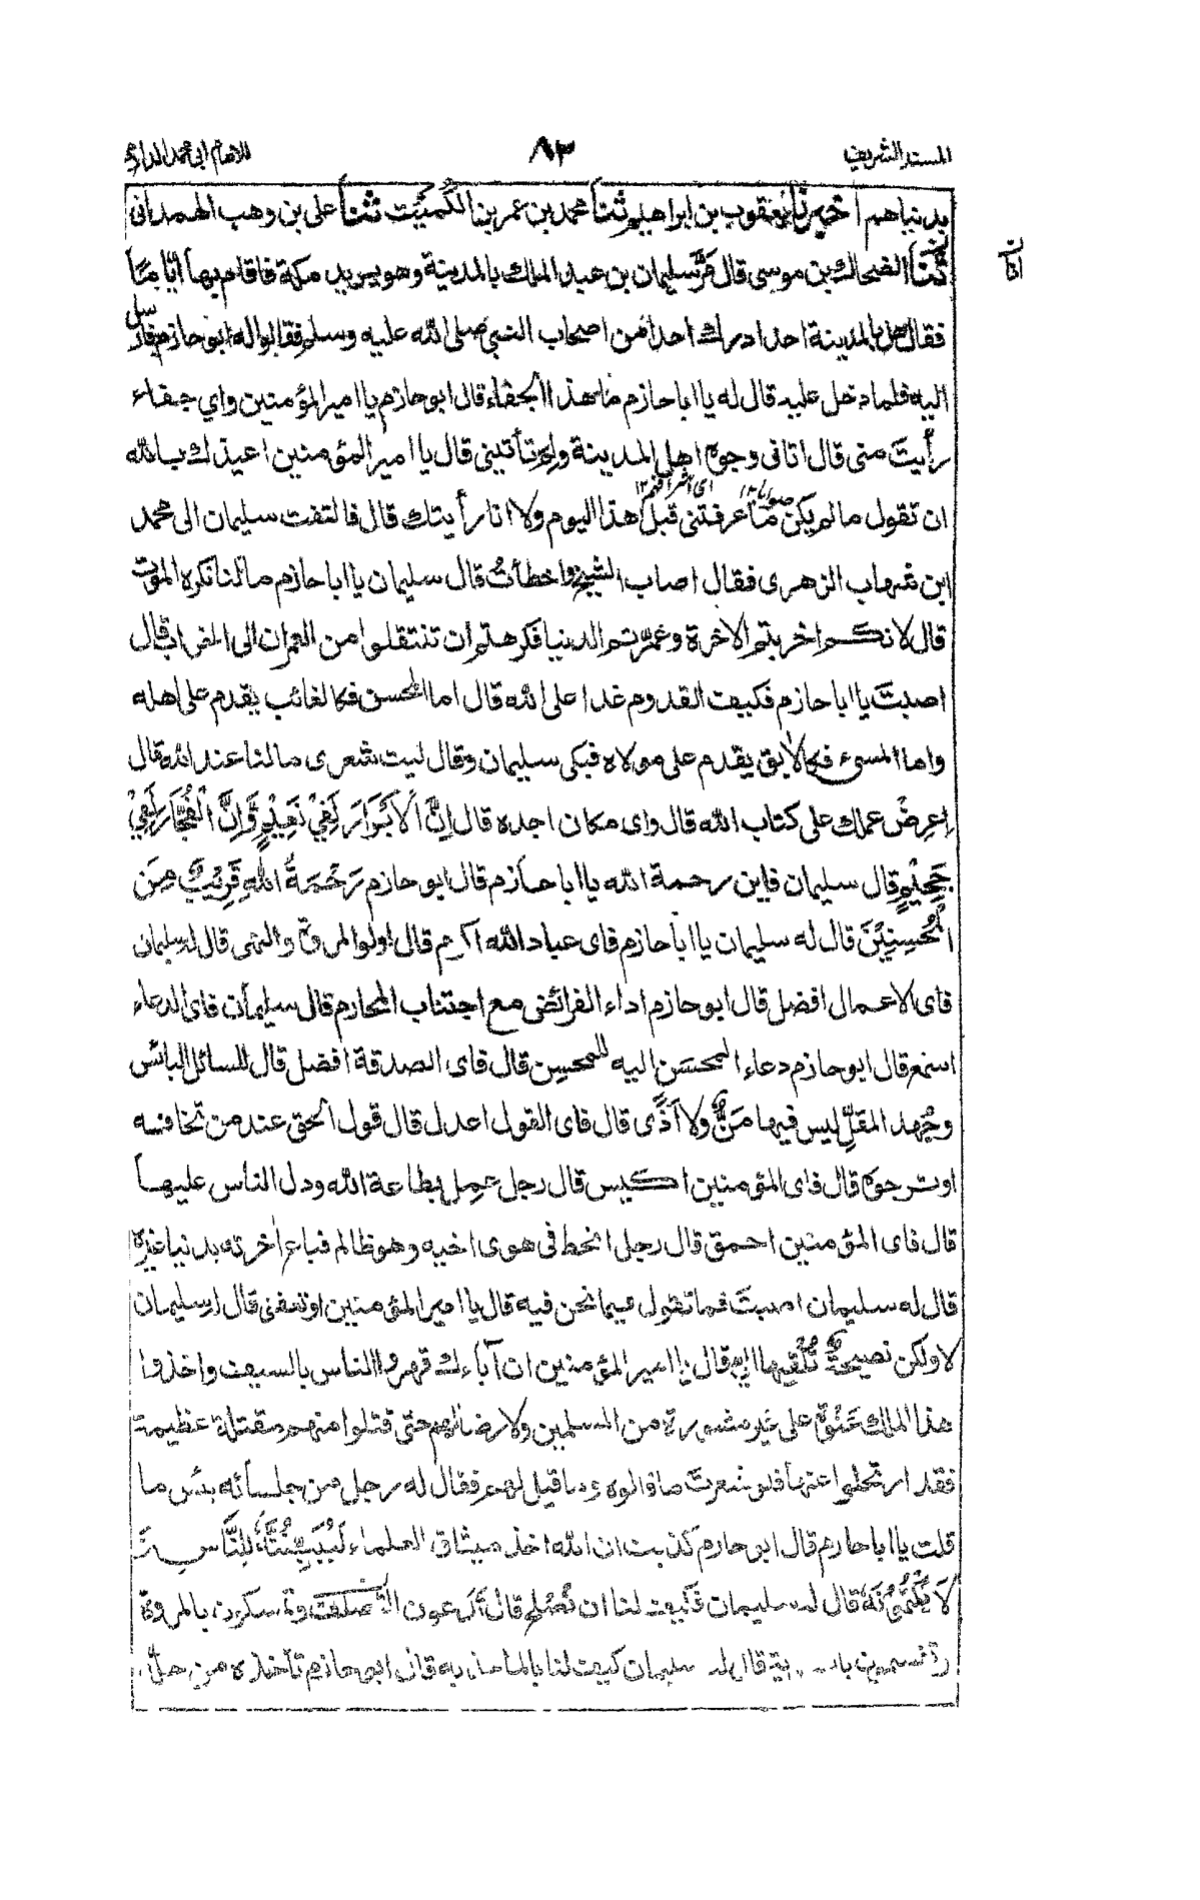 المسند الشريف ٨٢ للامام ابى محمد الدارمى
بدنياهم اخبرنا يعقوب بن ابراهيم ثنا محمد بن عمر بن الكميت ثنا على بن وهب الهمدانى
ثنا الضحاك بن موسى قال مر سليمان بن عبد الملك بالمدينة وهو يريد مكة فاقام بها أيّاماً
فقال هل بالمدينة احد ادرك احدا من اصحاب النبى صلى الله عليه وسلم فقالوا له ابو حازم فارسل
اليه فلما دخل عليه قال له يا ابا حازم ما هذا الجفاء قال ابو حازم يا امير المؤمنين واي جفاء
رأيتَ منى قال اتانى وجوه اهل المدينة ولم تأتينى قال يا امير المؤمنين اعيذك بالله
اى اشرافهم ١٢
ان تقول ما لم يكن ما عرفتنى قبل هذا اليوم ولا انا رأيتك قال فالتفت سليمان الى محمد
ابن شهاب الزهرى فقال اصاب الشيخ واخطأتُ قال سليمان يا ابا حازم ما لنا نكره الموت
قال لانكم اخربتم الاخرة وعمّرتم الدنيا فكرهتم ان تنتقلوا من العمران الى الخراب قال
اصبتَ يا ابا حازم فكيف القدوم غدا على الله قال اما المحسن فكالغائب يقدم على اهله
واما المسىء فكالآبق يقدم على مولاه فبكى سليمان وقال ليت شعرى ما لنا عند الله قال
اعرِضْ عملك على كتاب الله قال واى مكان اجده قال اِنَّ الْاَبْرَارَ لَفِيْ نَعِيْمٍ وَّاِنَّ الْفُجَّارَ لَفِيْ
جَحِيْمٍ قال سليمان فاين رحمة الله يا ابا حازم قال ابو حازم رَحْمَةُ اللهِ قَرِيْبٌ مِّنَ
الْمُحْسِنِيْنَ قال له سليمان يا ابا حازم فاى عباد الله اكرم قال اولوا المروة والنهى قال له سليمان
فاى الاعمال افضل قال ابو حازم اداء الفرائض مع اجتناب المحارم قال سليمان فاى الدعاء
اسمع قال ابو حازم دعاء المحسَن اليه للمحسِن قال فاى الصدقة افضل قال للسائل البائس
وجُهد المقلّ ليس فيها مَنٌّ ولا اَذًى قال فاى القول اعدل قال قول الحق عند من تخافه
او ترجوه قال فاى المؤمنين اكيس قال رجل عمِل بطاعة الله ودل الناس عليها
قال فاى المؤمنين احمق قال رجل انحط فى هوى اخيه وهو ظالم فباع اخرته بدنيا غيره
قال له سليمان اصبتَ فما تقول فيما نحن فيه قال يا امير المؤمنين او تعفنى قال له سليمان
لا ولكن نصيحةٌ تُلقيها الى قال يا امير المؤمنين ان آباءك قهروا الناس بالسيف واخذوا
هذا الملك عَنْوَةً على غير مشورة من المسلمين ولا رضا لهم حتى قتلوا منهم مقتلة عظيمة
فقد ارتحلوا عنها فلو شعرتَ ما قالوه وما قيل لهم فقال له رجل من جلسائه بئس ما
قلت يا ابا حازم قال ابو حازم كذبت ان الله اخذ ميثاق العلماء لَيُبَيِّنُنَّهُ لِلنَّاسِ وَ
لَا يَكْتُمُوْنَهُ قال له سليمان فكيف لنا ان نُصلح قال تدعون الصلف وتمسكون بالمروة
وتقسمون بالسوية قال له سليمان كيف لنا بالماخذ به قال ابو حازم تأخذه من حلّه